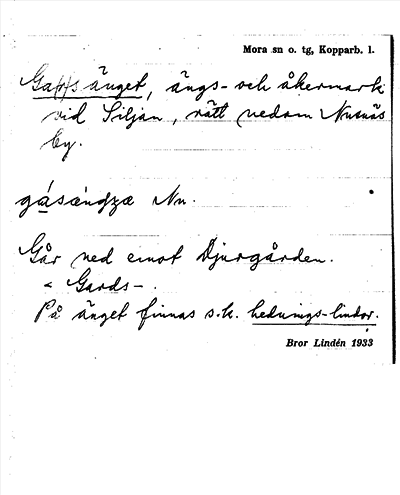 Mora sn o. tg, Kopparb. l.
Ga(r)s änget, ängs- och åkermark
vid Siljan, rätt nedom Nusnäs
by.
gásændzæ Nu.
Går ned emot Djurgården.
< Gards-.
På änget finnas s.k. hednings-lindor.
Bror Lindén 1933